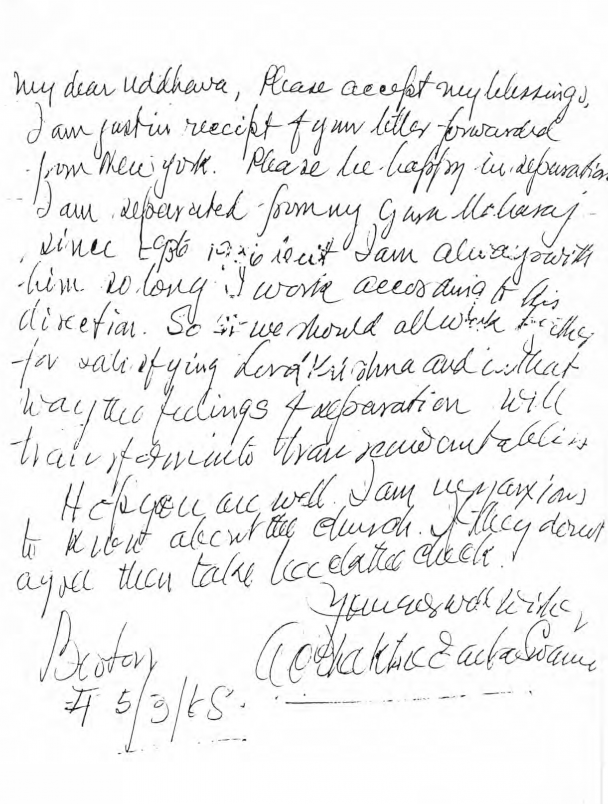 My dear Uddhava, Please accept my blessings,
I am just in receipt of your letter forwarded
from New York. Please be happy in separation
I am separated from my Guru Maharaj
since 1936 but I am always with
him so long I work according to his
direction. So we should all work together
for satisfying Lord Krishna and in that
way the feelings of separation will
transform into transcendental bliss
Hope you are well. I am very anxious
to know about the church. If they do not
agree then take back the check.
Your ever well wisher,
A.C. Bhaktivedanta Swami
Boston
5/3/68.